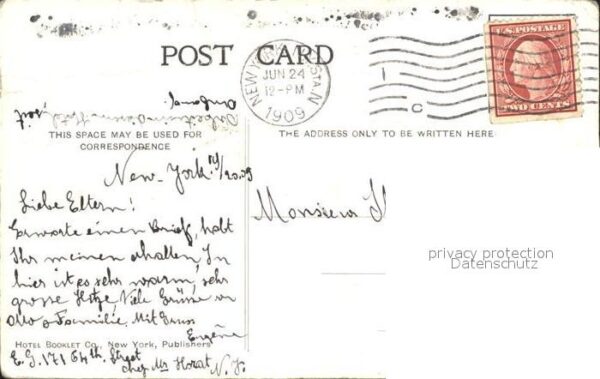 POST CARD
NEW YORK, N.Y.
JUN 24
12-PM
1909
STA. N
C
U.S. POSTAGE
TWO CENTS
THIS SPACE MAY BE USED FOR
CORRESPONDENCE
THE ADDRESS ONLY TO BE WRITTEN HERE
New-York
Liebe Eltern!
Erwarte einen Brief, habt
Ihr meinen erhalten. In
hier ist es sehr warm, sehr
grosse Hitze, Viele Grüsse an
Otto & Familie. Mit Gruss
Eugène
E. G. 171 64th. Street
chez Mr Horat, N. Y.
Monsieur
HOTEL BOOKLET CO., NEW YORK, PUBLISHERS
privacy protection
Datenschutz